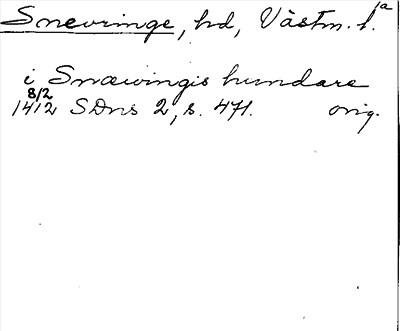 Snevringe, hd, Västm. l. a
i Snæwingis hundare
8/2
1412 SDns 2, s. 471. orig.